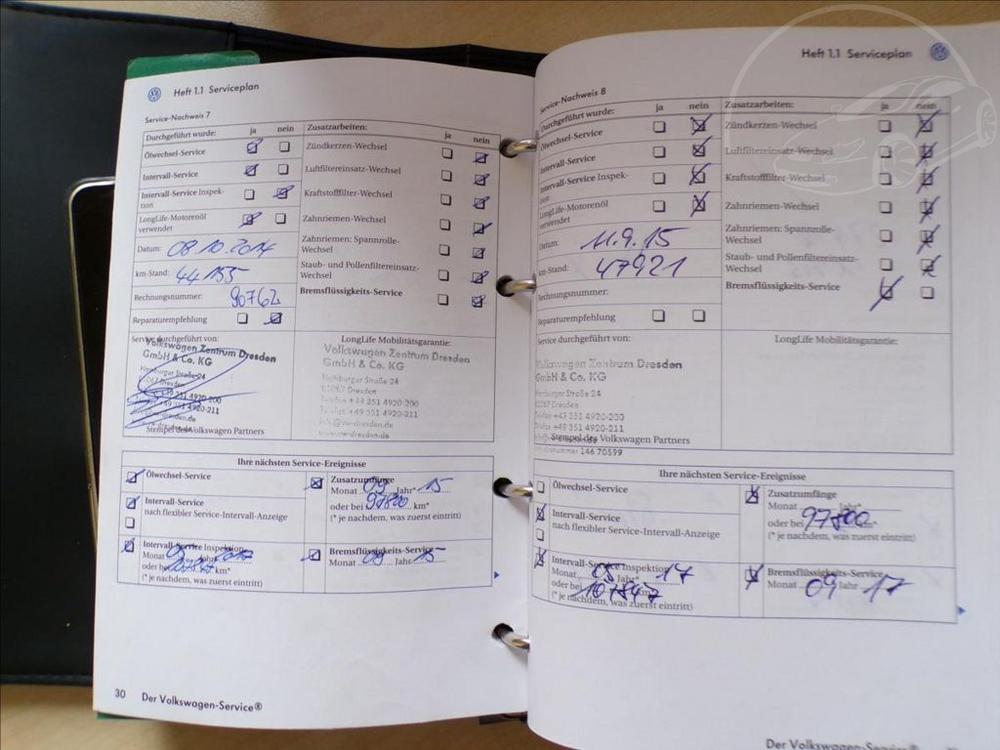 Heft 1.1 Serviceplan
Service-Nachweis 7
Durchgeführt wurde: ja nein Zusatzarbeiten: ja nein
Ölwechsel-Service
Zündkerzen-Wechsel
Intervall-Service
Luftfiltereinsatz-Wechsel
Intervall-Service Inspek-
tion
Kraftstofffilter-Wechsel
LongLife-Motorenöl
verwendet
Zahnriemen-Wechsel
Datum: 08.10.2014
Zahnriemen: Spannrolle-
Wechsel
km-Stand: 44 155
Staub- und Pollenfiltereinsatz-
Wechsel
Rechnungsnummer: 90762
Bremsflüssigkeits-Service
Reparaturempfehlung
Service durchgeführt von:
Volkswagen Zentrum Dresden
GmbH & Co. KG
Hamburger Straße 24
+49 351 4920-200
+49 351 4920-211
Stempel des Volkswagen Partners
LongLife Mobilitätsgarantie:
Volkswagen Zentrum Dresden
GmbH & Co. KG
Hamburger Straße 24
Dresden
Telefon +49 351 4920-200
Telefax +49 351 4920-211
info@vw-dresden.de
www.vw-dresden.de
Ihre nächsten Service-Ereignisse
Ölwechsel-Service
Intervall-Service
nach flexibler Service-Intervall-Anzeige
Intervall-Service Inspektion
Monat Jahr* 2017
oder bei km*
(* je nachdem, was zuerst eintritt)
Zusatzumfänge
Monat 09 Jahr* 15
oder bei 97800 km*
(* je nachdem, was zuerst eintritt)
Bremsflüssigkeits-Service
Monat 09 Jahr 15
30 Der Volkswagen-Service®
Heft 1.1 Serviceplan
Service-Nachweis 8
Durchgeführt wurde: ja nein Zusatzarbeiten: ja nein
Ölwechsel-Service
Zündkerzen-Wechsel
Intervall-Service
Luftfiltereinsatz-Wechsel
Intervall-Service Inspek-
tion
Kraftstofffilter-Wechsel
LongLife-Motorenöl
verwendet
Zahnriemen-Wechsel
Datum: 11.9.15
Zahnriemen: Spannrolle-
Wechsel
km-Stand: 47921
Staub- und Pollenfiltereinsatz-
Wechsel
Rechnungsnummer:
Bremsflüssigkeits-Service
Reparaturempfehlung
Service durchgeführt von:
Volkswagen Zentrum Dresden
GmbH & Co. KG
Hamburger Straße 24
Dresden
Telefon +49 351 4920-200
Telefax +49 351 4920-211
Stempel des Volkswagen Partners
146 70599
LongLife Mobilitätsgarantie:
Ihre nächsten Service-Ereignisse
Ölwechsel-Service
Intervall-Service
nach flexibler Service-Intervall-Anzeige
Intervall-Service Inspektion
Monat 05 Jahr* 17
oder bei 107847 km*
(* je nachdem, was zuerst eintritt)
Zusatzumfänge
Monat Jahr*
oder bei 97800 km*
(* je nachdem, was zuerst eintritt)
Bremsflüssigkeits-Service
Monat 09 Jahr 17
Der Volkswagen-Service®